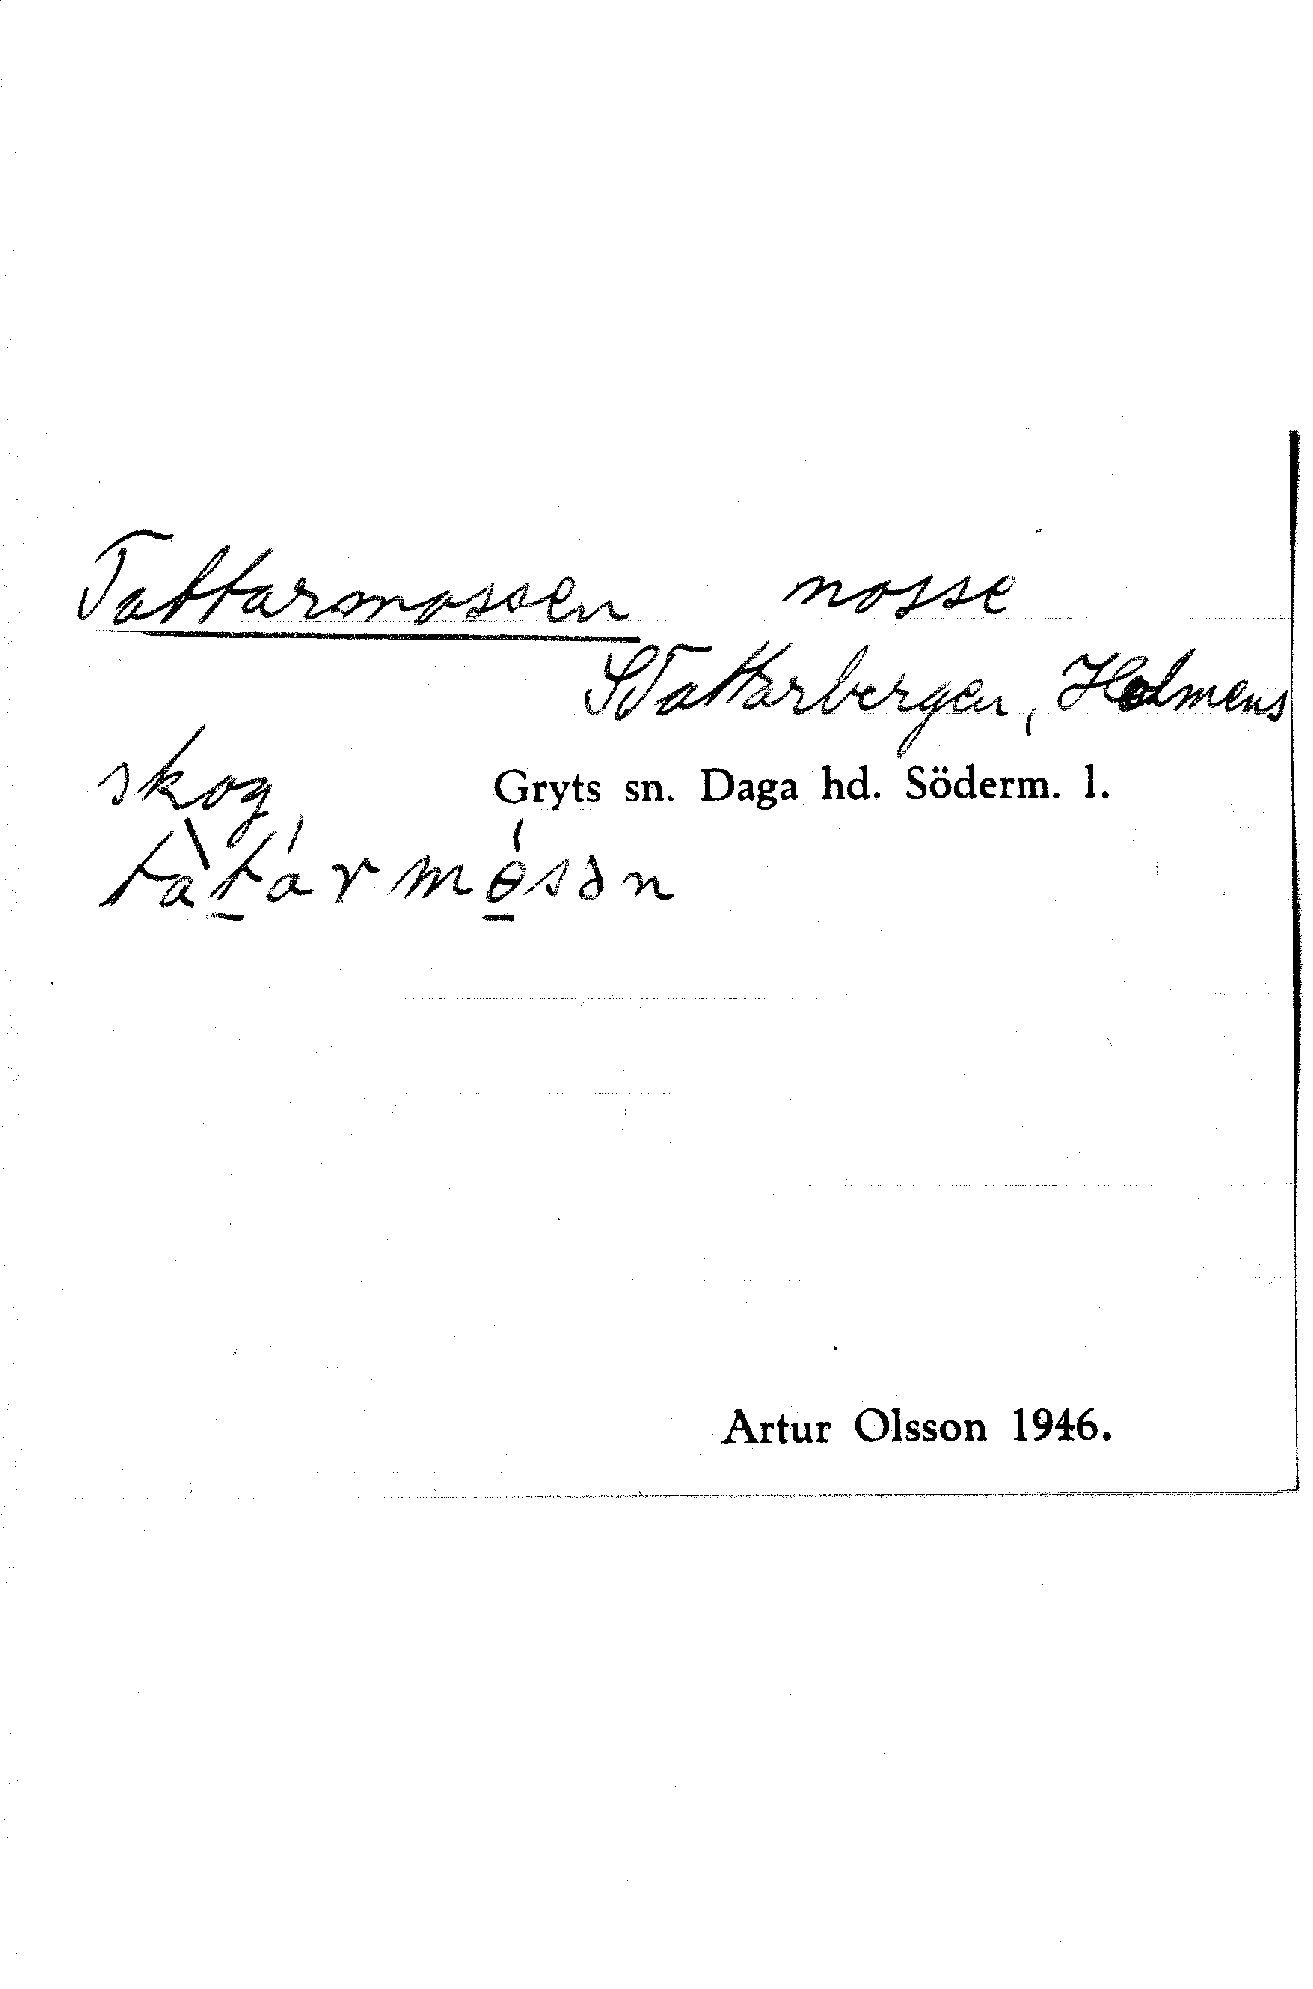 Tattarmossen mosse
S Tattarbergen, Holmens
skog, Gryts sn. Daga hd. Söderm. l.
tàtármósən
Artur Olsson 1946.